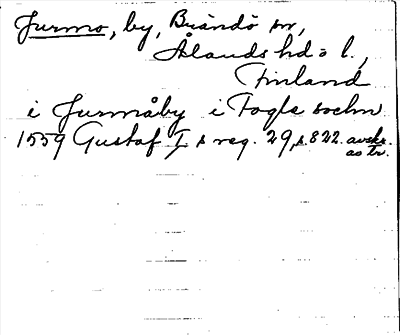 Jurmo, by, Brändö sn,
Ålands hd o l.,
Finland
i Jurmåby i Fogle sochn
1559 Gustaf I s reg. 29, s. 822. avskr.
as tr.